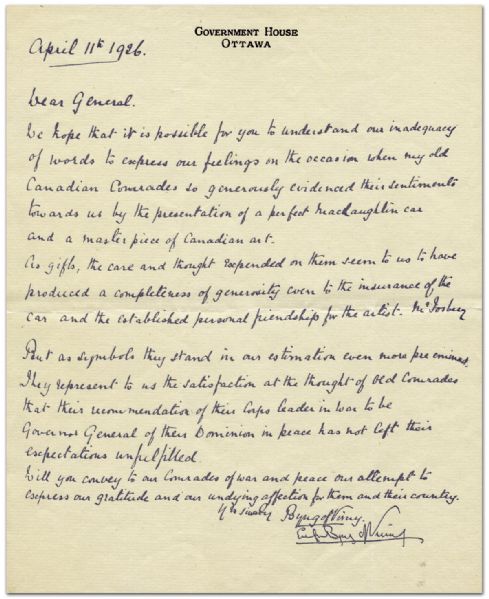 GOVERNMENT HOUSE
OTTAWA
April 11th 1926.
Dear General.
We hope that it is possible for you to understand our inadequacy
of words to express our feelings on the occasion when my old
Canadian Comrades so generously evidenced their sentiments
towards us by the presentation of a perfect MacLaughlin car
and a master piece of Canadian art.
As gifts, the care and thought expended on them seem to us to have
produced a completeness of generosity even to the insurance of the
car and the established personal friendship for the artist. Mr Fosbery
But as symbols they stand in our estimation even more pre eminent.
They represent to us the satisfaction at the thought of Old Comrades
that their recommendation of their Corps leader in war to be
Governor General of their Dominion in peace has not left their
expectations unfulfilled.
Will you convey to our Comrades of war and peace our attempt to
express our gratitude and our undying affection for them and their country.
Yrs sincerely Byng of Vimy.
Byng of Vimy